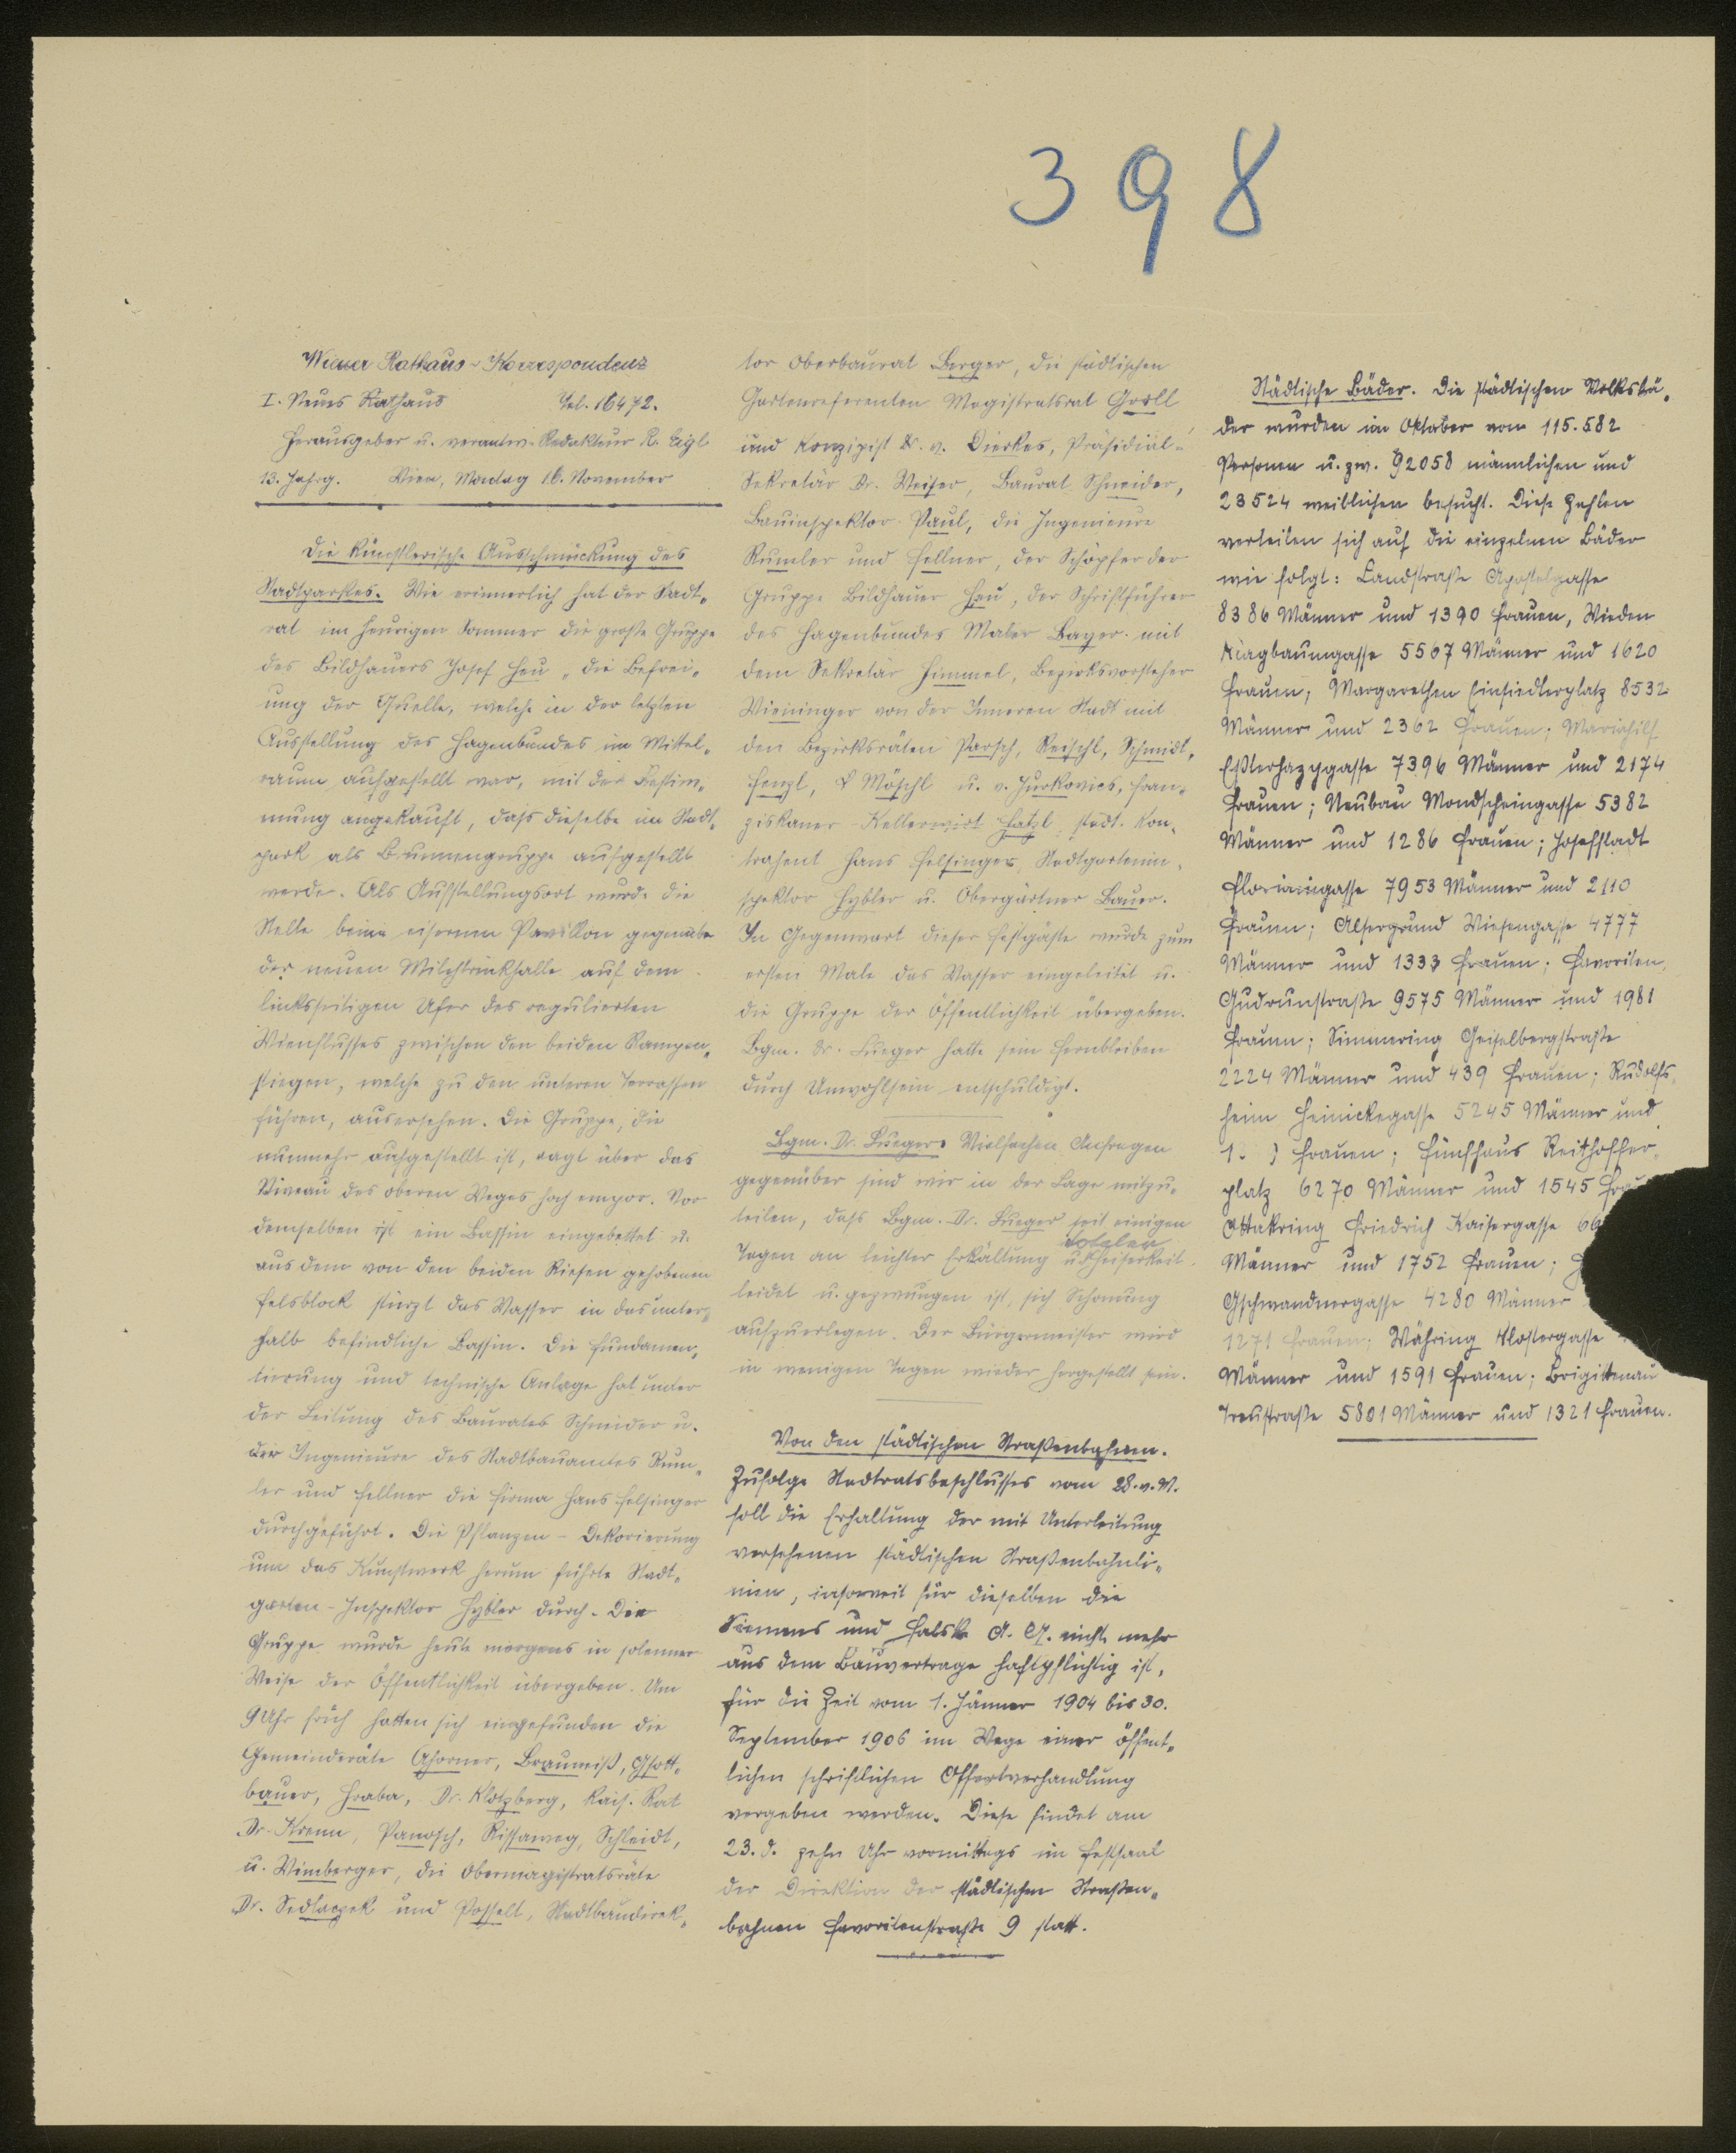 398
Wiener Rathaus-Korrespondenz
I. Neues Rathaus Tel. 16472.
Herausgeber u. verantw. Redakteur R. Eigl
13. Jahrg. Wien, Montag 16. November
Die künstlerische Ausschmückung des
Stadtparkes. Wie erinnerlich hat der Stadt-
rat im heurigen Sommer die große Gruppe
des Bildhauers Josef Heu „die Befrei-
ung der Quelle, welche in der letzten
Ausstellung des Hagenbundes im Mittel-
raum aufgestellt war, mit der Bestim-
mung angekauft, daß dieselbe im Stadt-
park als Brunnengruppe aufgestellt
werde. Als Aufstellungsort wurde die
Stelle beim eisernen Pavillon gegenüber
der neuen Milchtrinkhalle auf dem
linksseitigen Ufer des regulierten
Wienflusses zwischen den beiden Rampen-
stiegen, welche zu den unteren Terrassen
führen, ausersehen. Die Gruppe, die
nunmehr aufgestellt ist, ragt über das
Niveau des oberen Weges hoch empor. Vor
demselben ist ein Bassin eingebettet u.
aus dem von den beiden Riesen gehobenen
Felsblock stürzt das Wasser in das unter-
halb befindliche Bassin. Die Fundamen-
tierung und technische Anlage hat unter
der Leitung des Baurates Schneider u.
der Ingenieure des Stadtbauamtes Rum-
ler und Fellner die Firma Hans Felsinger
durchgeführt. Die Pflanzen-Dekorierung
um das Kunstwerk herum führte Stadt-
garten-Inspektor Hybler durch. Die
Gruppe wurde heute morgens in solenner
Weise der Öffentlichkeit übergeben. Um
9 Uhr früh hatten sich eingefunden die
Gemeinderäte Ahorner, Brauneiß, Gsott-
bauer, Hraba, Dr. Klotzberg, Kais. Rat
Dr. Krenn, Panosch, Rissaweg, Schleidt,
u. Wimberger, die Obermagistratsräte
Dr. Sedlaczek und Posselt, Stadtbaudirek-
tor Oberbaurat Berger, die städtischen
Gartenreferenten Magistratsrat Groll
und Konzipist Dr. v. Dierkes, Präsidial-
Sekretär Dr. Weiser, Baurat Schneider,
Bauinspektor Paul, die Ingenieure
Rumler und Fellner, der Schöpfer der
Gruppe Bildhauer Heu, der Schriftführer
des Hagenbundes Maler Bayer mit
dem Sekretär Himmel, Bezirksvorsteher
Wieninger von der Inneren Stadt mit
den Bezirksräten Parsch, Reischl, Schmidt,
Fenzl, Möschl u. v. Jurkovics, Fran-
ziskaner-Kellerwirt Hatzl, städt. Kon-
trahent Hans Felsinger, Stadtgartenin-
spektor Hybler u. Obergärtner Bauer.
In Gegenwart dieser Festgäste wurde zum
ersten Male das Wasser eingeleitet u.
die Gruppe der Öffentlichkeit übergeben.
Bgm. Dr. Lueger hatte sein Fernbleiben
durch Unwohlsein entschuldigt.
Bgm. Dr. Lueger. Vielfachen Anfragen
gegenüber sind wir in der Lage mitzu-
teilen, daß Bgm. Dr. Lueger seit einigen
Tagen an leichter Erkältung u. Heiserkeit
leidet u. gezwungen ist, sich Schonung
aufzuerlegen. Der Bürgermeister wird
in wenigen Tagen wieder hergestellt sein.
Von den städtischen Straßenbahnen.
Zufolge Stadtratsbeschlusses vom 28. v. M.
soll die Erhaltung der mit Unterleitung
versehenen städtischen Straßenbahnli-
nien, insoweit für dieselben die
Siemens und Halske A. G. nicht mehr
aus dem Bauvertrage haftpflichtig ist,
für die Zeit vom 1. Jänner 1904 bis 30.
September 1906 im Wege einer öffent-
lichen schriftlichen Offertverhandlung
vergeben werden. Diese findet am
23. d. zehn Uhr vormittags im Festsaal
der Direktion der städtischen Straßen-
bahnen Favoritenstraße 9 statt.
Städtische Bäder. Die städtischen Volksbä-
der wurden im Oktober von 115.582
Personen u. zw. 92058 männlichen und
23524 weiblichen besucht. Diese Zahlen
verteilen sich auf die einzelnen Bäder
wie folgt: Landstraße Apostelgasse
8386 Männer und 1390 Frauen, Wieden
Klagbaumgasse 5567 Männer und 1620
Frauen; Margarethen Einsiedlerplatz 8532
Männer und 2362 Frauen; Mariahilf
Eßterhazygasse 7396 Männer und 2174
Frauen; Neubau Mondscheingasse 5382
Männer und 1286 Frauen; Josefstadt
Florianigasse 7953 Männer und 2110
Frauen; Alsergrund Wiesengasse 4777
Männer und 1333 Frauen; Favoriten
Gudrunstraße 9575 Männer und 1981
Frauen; Simmering Geiselbergstraße
2224 Männer und 439 Frauen; Rudolfs-
heim Heinickegasse 5245 Männer und
Frauen; Fünfhaus Reithoffer-
platz 6270 Männer und 1545
Ottakring Friedrich Kaisergasse
Männer und 1752 Frauen;
Gschwandnergasse 4280 Männer
1271 Frauen; Währing Klostergasse
Männer und 1591 Frauen; Brigittenau
Treustraße 5801 Männer und 1321 Frauen.